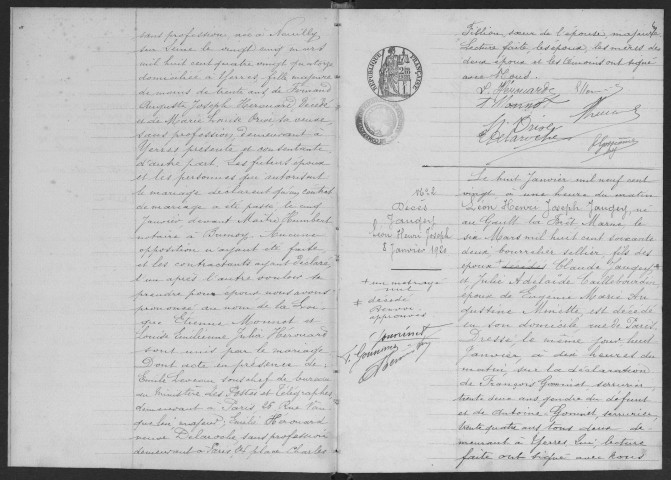 sans profession, née à Neuilly
sur Seine le vingt cinq mars
mil huit cent quatre vingt quatorze
domiciliée à Yerres, fille majeure
de moins de trente ans de Fernand
Auguste Joseph Hérouard décédé
et de Marie Louise sa veuve
sans profession, demeurant à
Yerres présente et consentante
d'autre part. Les futurs époux
et les personnes qui autorisent
le mariage déclarent qu'un contrat
de mariage a été passé le
Janvier devant Maître Humbert
notaire à Brunoy. Aucune
opposition n'ayant été faite
et les contractants ayant déclaré
l'un après l'autre vouloir se
prendre pour époux nous avons
prononcé au nom de la Loi
que Etienne Monnot et
Louise Lucienne Julia Hérouard
sont unis par le mariage
Dont acte en présence de
Emile Leveau, sous chef de bureau
au ministère des Postes et Télégraphes
demeurant à Paris, 26, Rue
majeur, Emélie Hérouard
veuve Delaroche sans profession
demeurant à Paris, place Charles
Fillion, sœur de l'épouse, majeure.
Lecture faite, les époux, les mères des
deux époux et les témoins ont signé
avec Nous.
L. Hérouard
E. Monnot
Delaroche
REPUBLIQUE FRANÇAISE
N° 2
Décès
Jaugey
Léon Henri Joseph
8 Janvier 1920
Le huit Janvier mil neuf cent
vingt à une heure du matin
Léon Henri Joseph Jaugey, né
au Gault la Forêt Marne le
six Mars mil huit cent soixante
deux, bourrelier sellier, fils des
époux décédés Claude Jaugey
et Julie Adelaïde
époux de Eugénie Marie
Augustine est décédé
en son domicile rue de Paris.
Dressé le même jour huit
Janvier, à dix heures du
matin sur la déclaration
de François Gominot serrurier,
trente deux ans gendre du défunt
et de Antoine Gonnet, serrurier,
trente quatre ans tous deux
demeurant à Yerres qui, lecture
faite ont signé avec nous
+ un mot rayé
nul
+ décédé
Renvoi
approuvés
Gominot